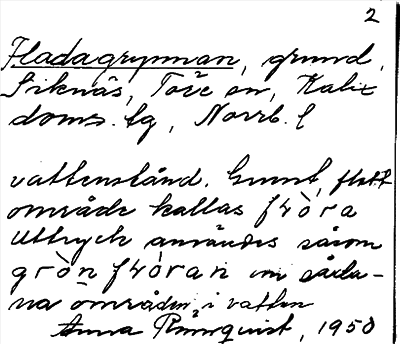 2
Fladagrynnan, grund,
Siknäs, Töre sn, Kalix
doms.lg, Norrb. l
vattenstånd. Grunt, flatt
område kallas fὠòra
Uttryck användes såsom
gròn fὠòran om såda-
na områden i vatten
Anna Rönnquist, 1950